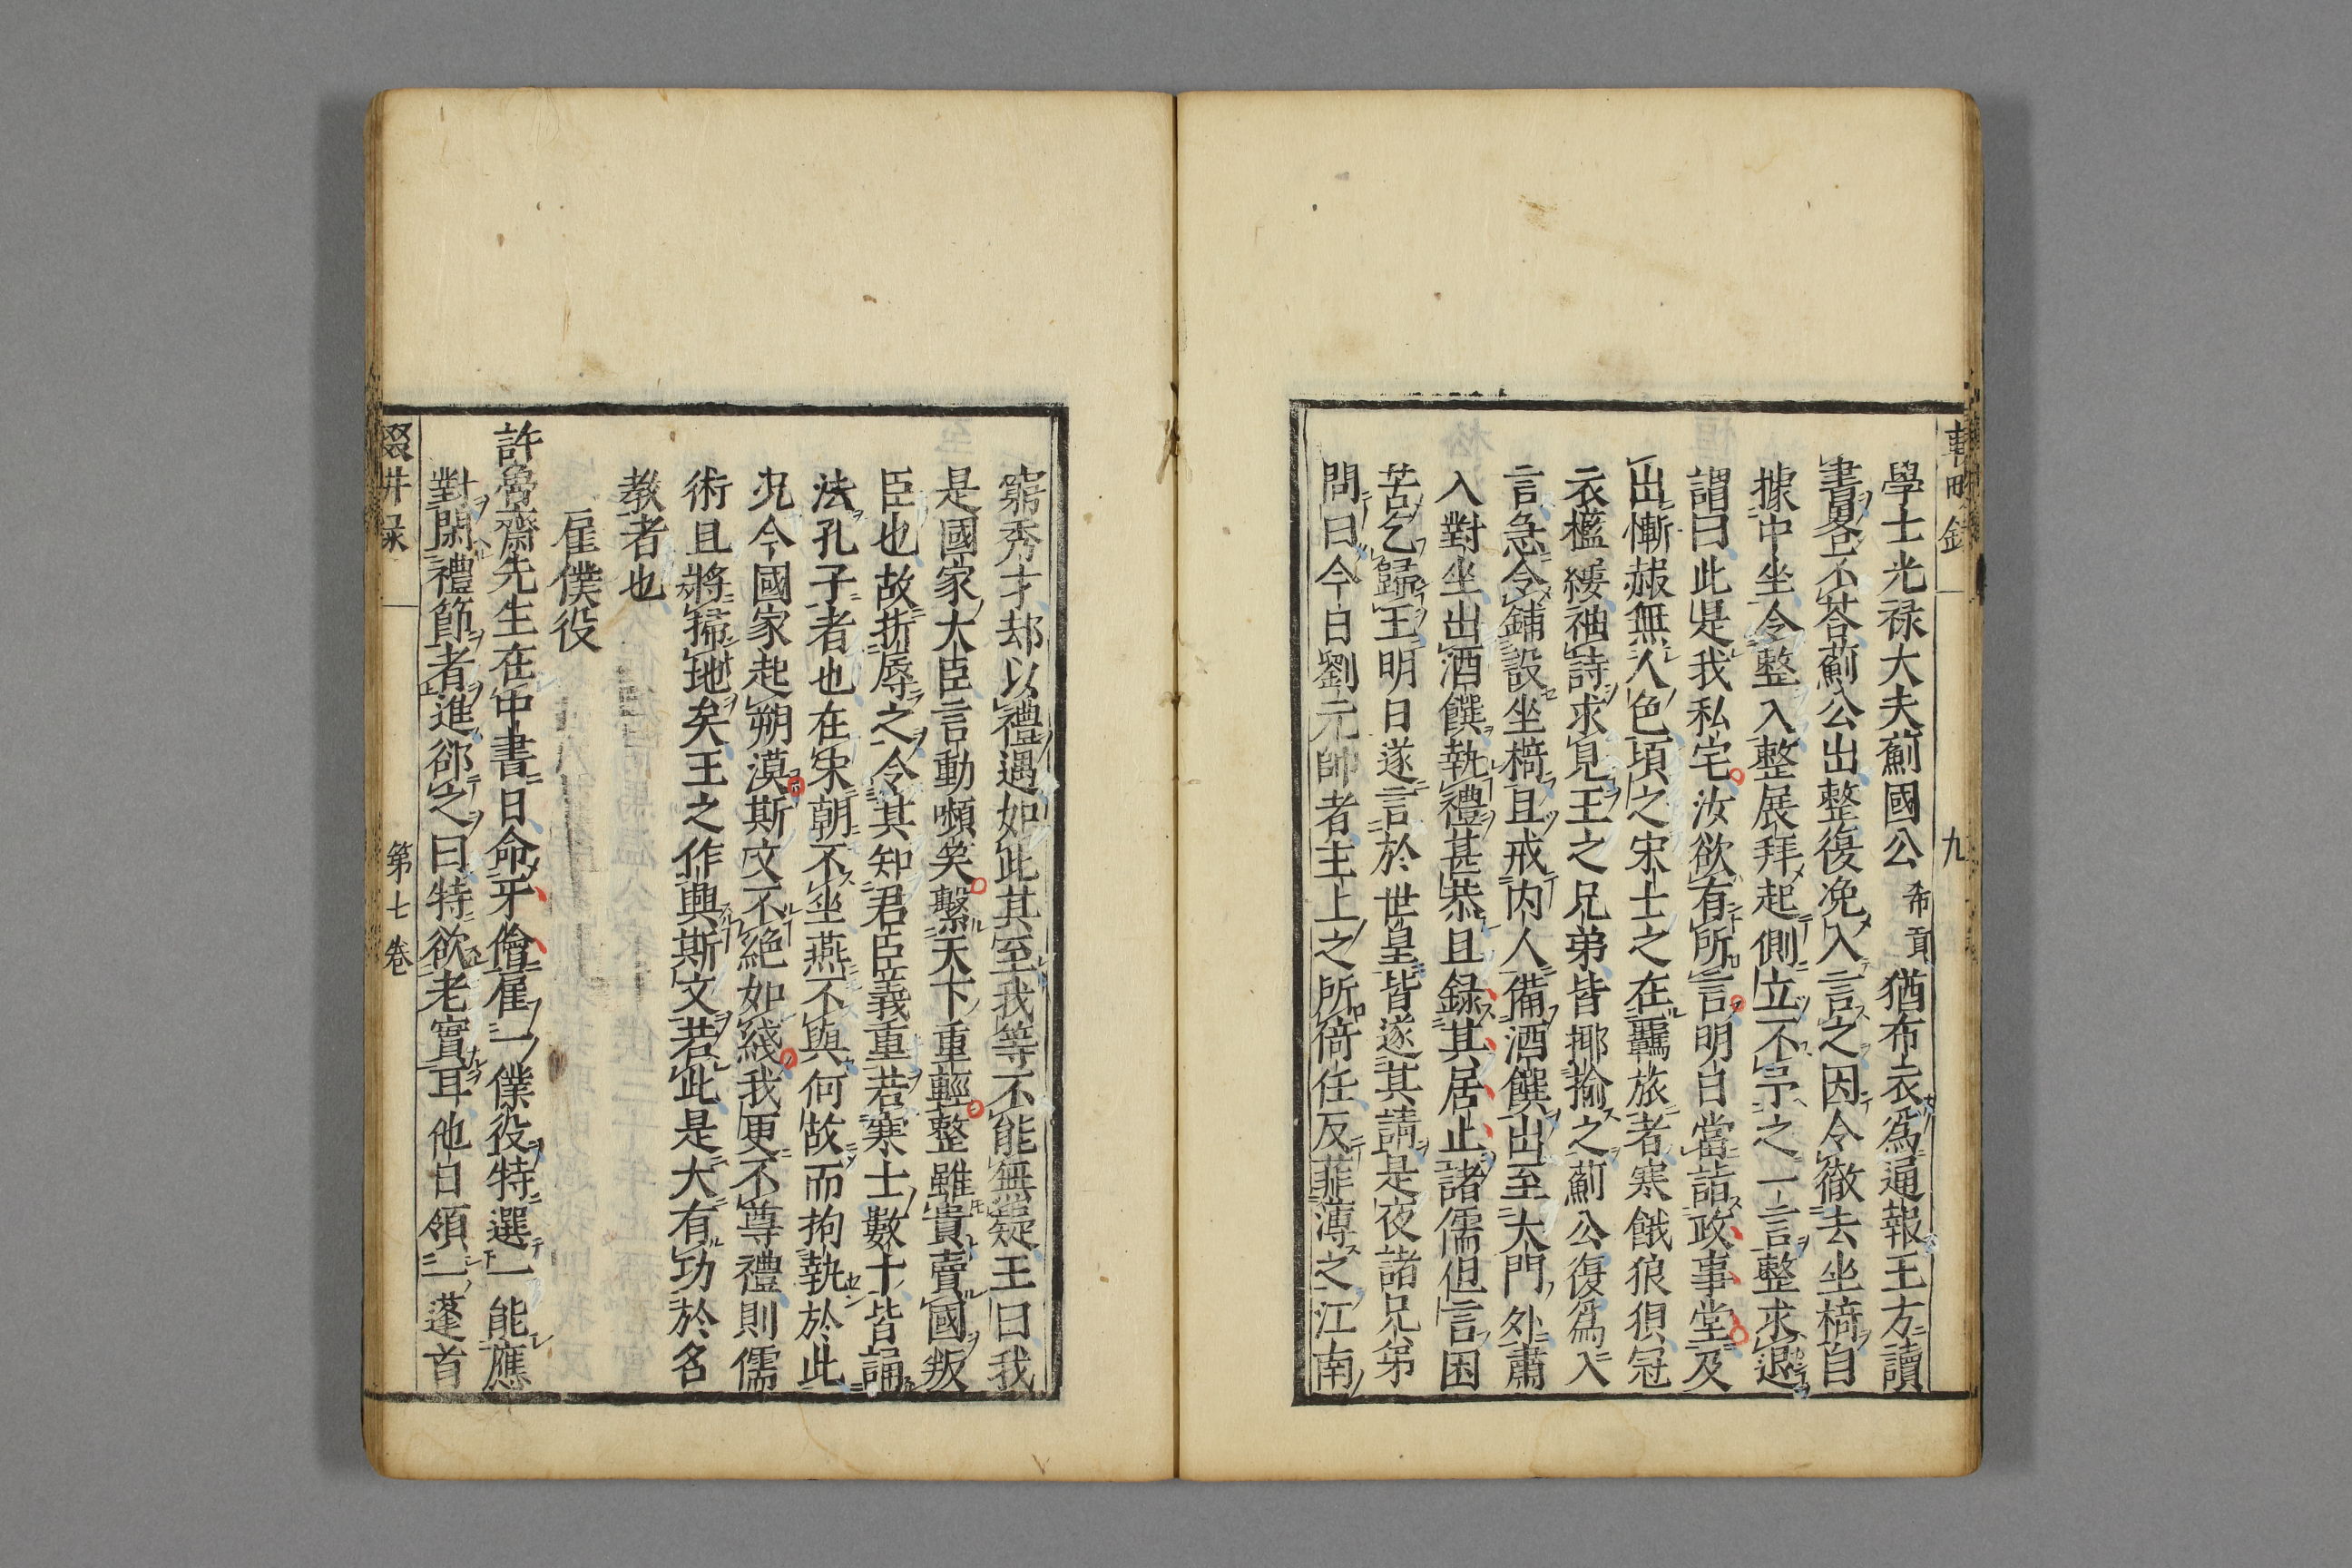 輟畊録
九
學士光禄大夫薊國公希貢猶布衣爲通報王方讀
書畧不荅薊公出整復浼入言之因令徹去坐椅自
據中坐令整入整展拜起側立不予之一言整求退
謂曰此是我私宅汝欲有所言明日當詣政事堂及
出慚赧無人色頃之宋士之在羈旅者寒餓狼狽冠
衣襤褸袖詩求見王之兄弟皆揶揄之薊公復爲入
言急令鋪設坐椅且戒内人備酒饌出至大門外肅
入對坐出酒饌執禮甚恭且録其居止諸儒但言困
苦乞歸王明日遂言於世皇皆遂其請是夜諸兄弟
問曰今日劉元帥者主上之所倚任反菲薄之江南
窮秀才却以禮遇如此其至我等不能無疑王曰我
是國家大臣言動嚬笑繫天下重輕整雖貴賣國叛
臣也故折辱之令其知君臣義重若寒士數十皆誦
法孔子者也在宋朝不坐燕不與何故而拘執於此
况今國家起朔漠斯文不絶如綫我更不尊禮則儒
術且將掃地矣王之作興斯文若此是大有功於名
教者也
雇僕役
許魯齋先生在中書日命牙儈雇一僕役特選一能應
對閑禮節者進卻之曰特欲老實耳他日領一蓬首
輟畊录
第七卷